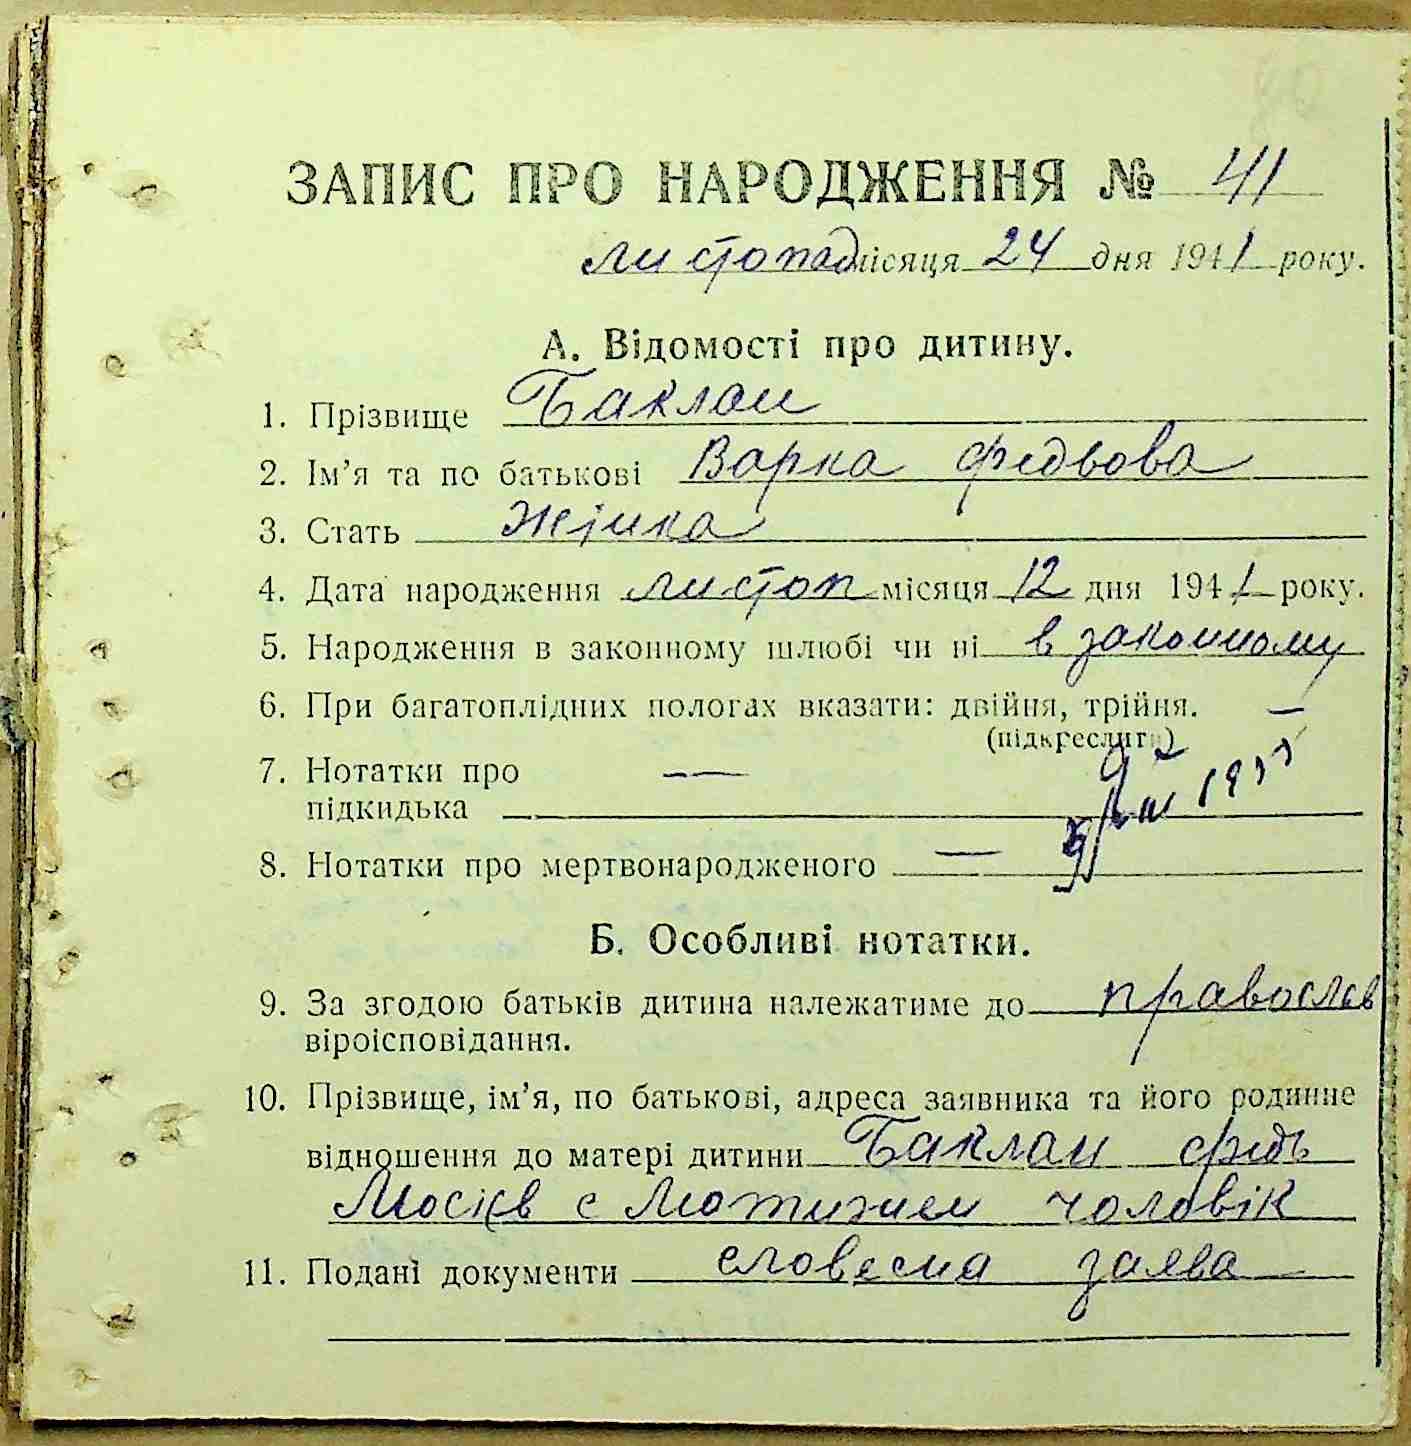 ЗАПИС ПРО НАРОДЖЕННЯ № 41
листопад місяця 24 дня 1941 року.
А. Відомості про дитину.
1. Прізвище Баклан
2. Ім’я та по батькові Варка Федьова
3. Стать жінка
4. Дата народження листоп місяця 12 дня 1941 року.
5. Народження в законному шлюбі чи ні в законному
6. При багатоплідних пологах вказати: двійня, трійня. —
(підкреслити)
7. Нотатки про —
підкидька
8. Нотатки про мертвонародженого —
Б. Особливі нотатки.
9. За згодою батьків дитина належатиме до православ
віроісповідання.
10. Прізвище, ім’я, по батькові, адреса заявника та його родинне
відношення до матері дитини Баклан Федь
Мосієв с чоловік
11. Подані документи словесна заява